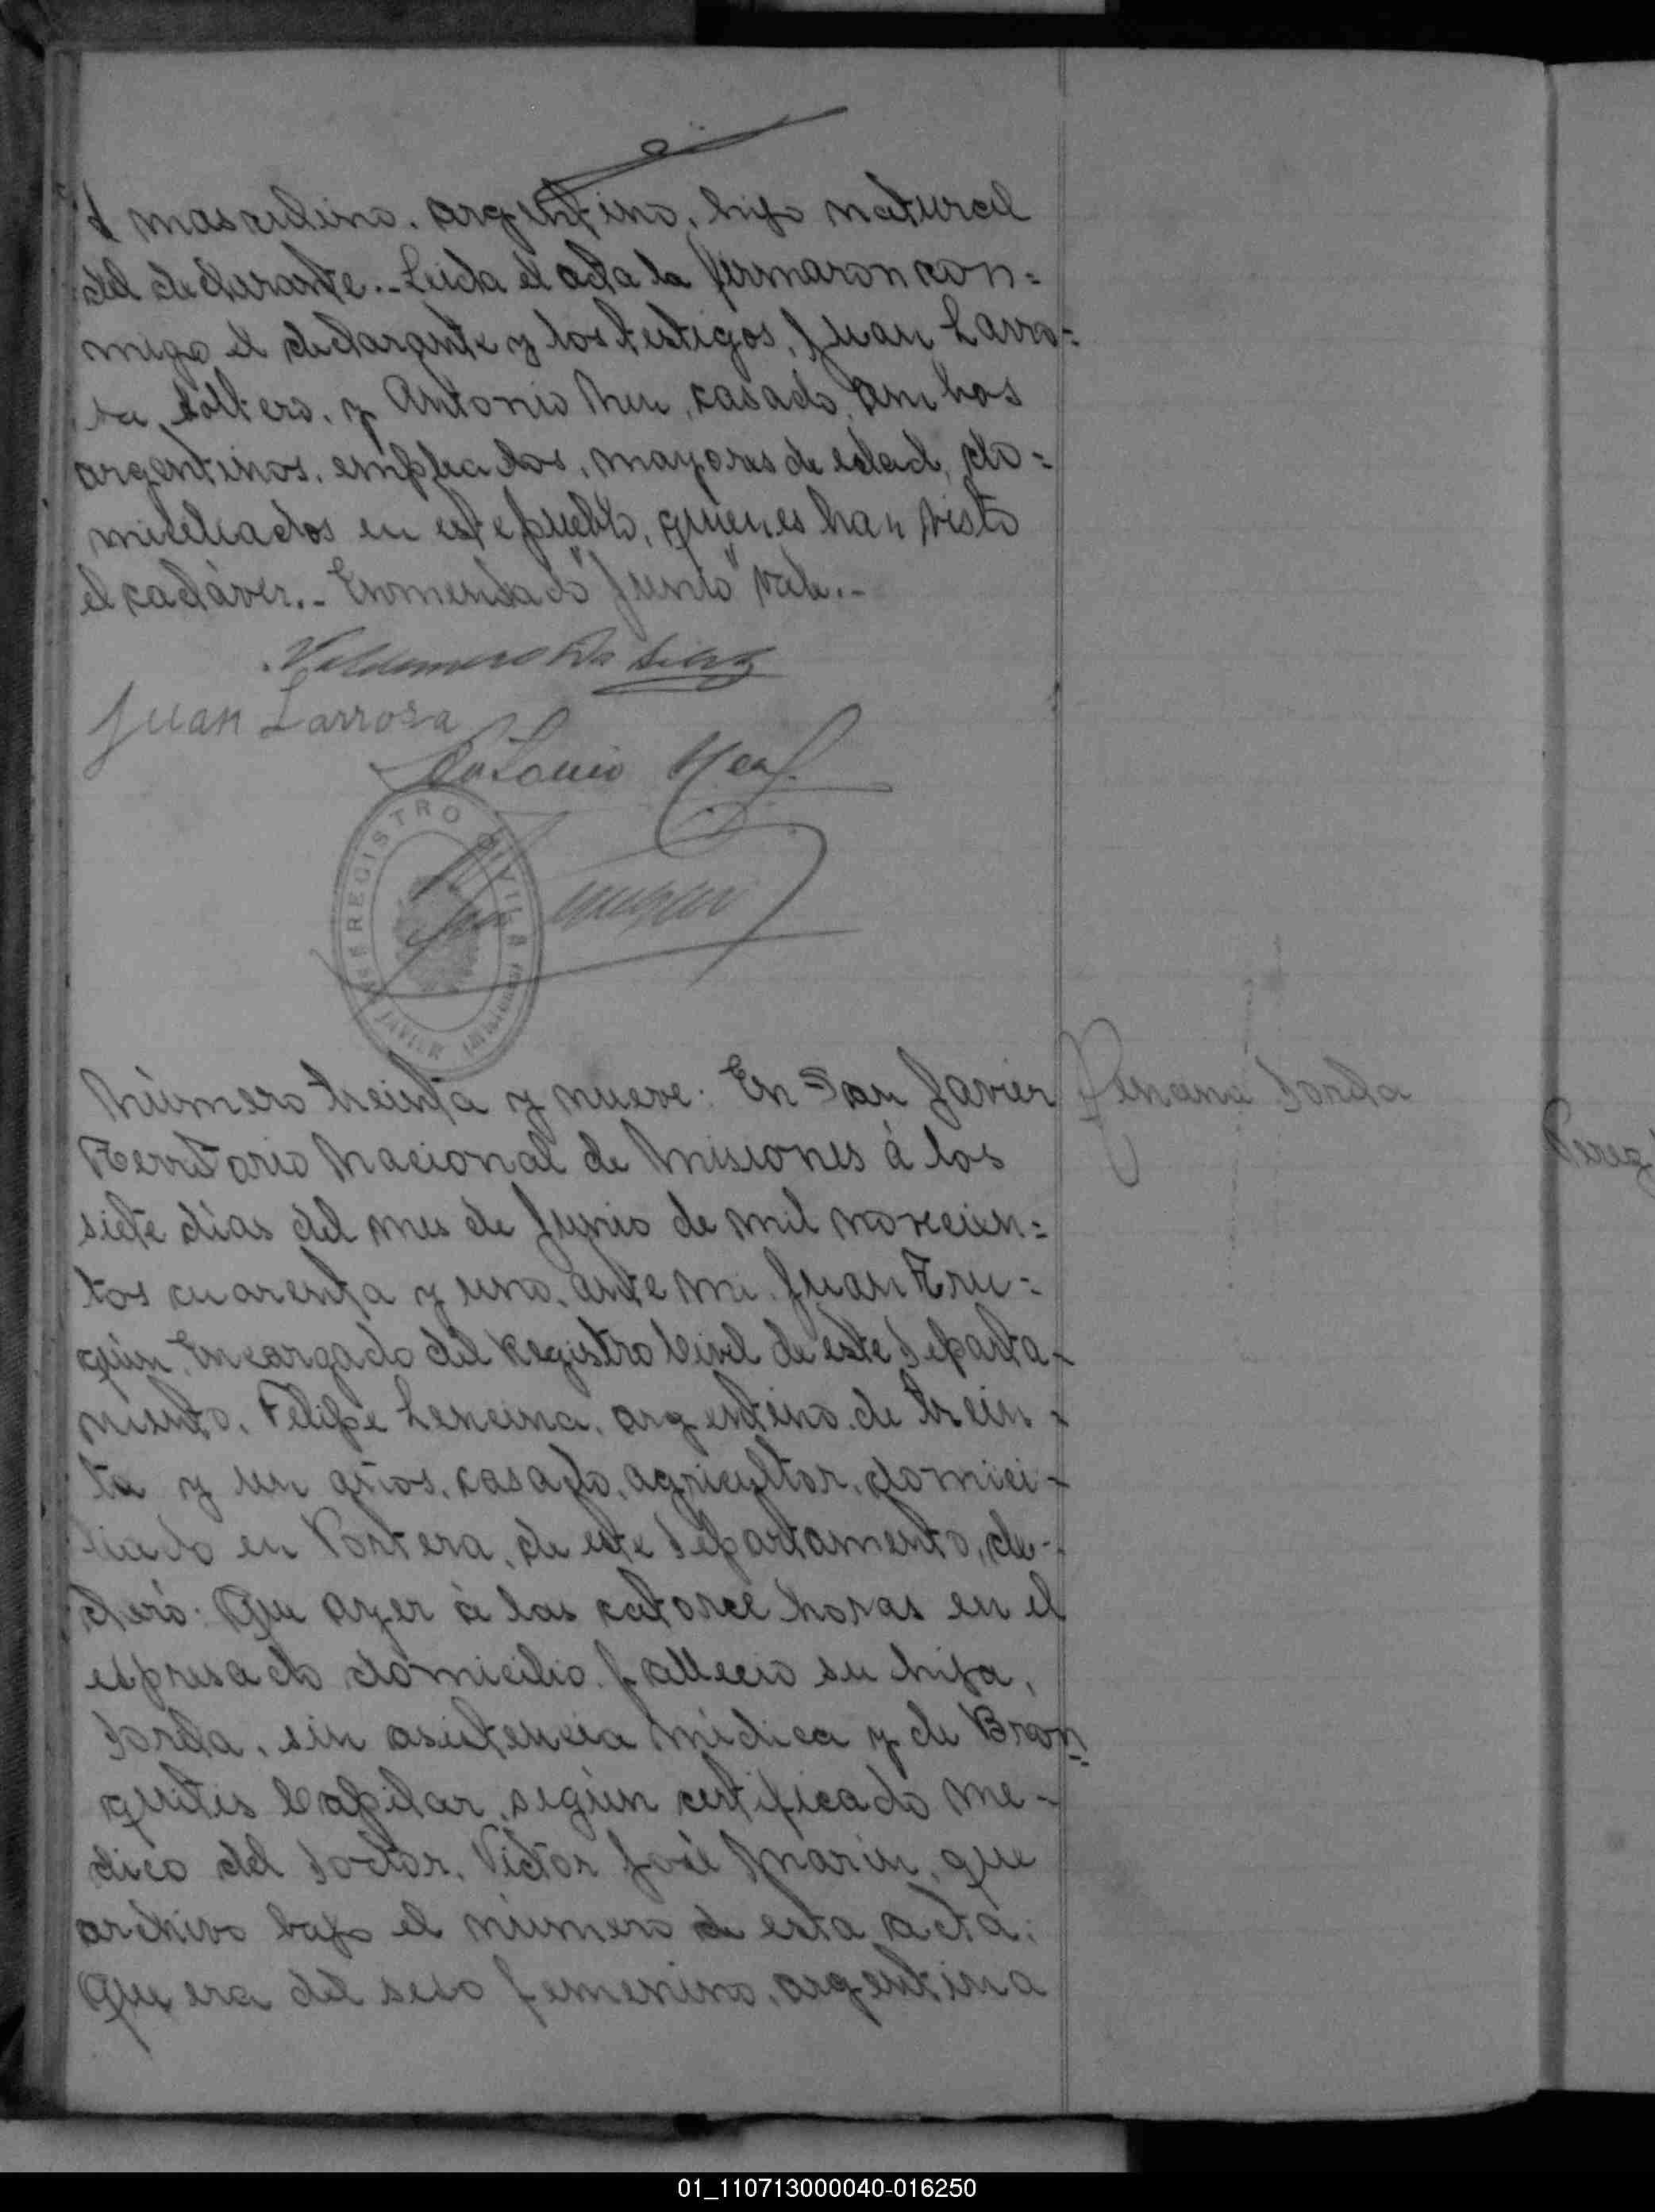 masculino. argentino, hijo natural
del declarante.- Leida el acta la firmaron con=
migo el declarante y los testigos, Juan Larro=
sa, soltero, y Antonio casado, ambos
argentinos, empleados, mayores de edad, do=
miciliados en este pueblo, quienes han visto
el cadáver.- Enmendado "Junio" vale.-
Valdemero Da Silva
Juan Larrosa
Antonio
REGISTRO CIVIL
SAN JAVIER MISIONES
Número treinta y nueve: En San Javier
Territorio Nacional de Misiones á los
siete días del mes de Junio de mil novecien=
tos cuarenta y uno, ante mi, Juan
Encargado del Registro Civil de este Departa-
mento, Felipe Lencina, argentino de trein-
ta y un años, casado, agricultor, domici-
liado en Portera, de este Departamento, de-
claró: Que ayer á las catorce horas en el
espresado domicilio fallecio su hija,
sin asistencia médica y de Bron
quitis Capilar, según certificado me-
dico del Doctor, Victor José Marin, que
archivo bajo el número de esta acta:
Que era del sexo femenino, argentina
Perez
01_110713000040-016250